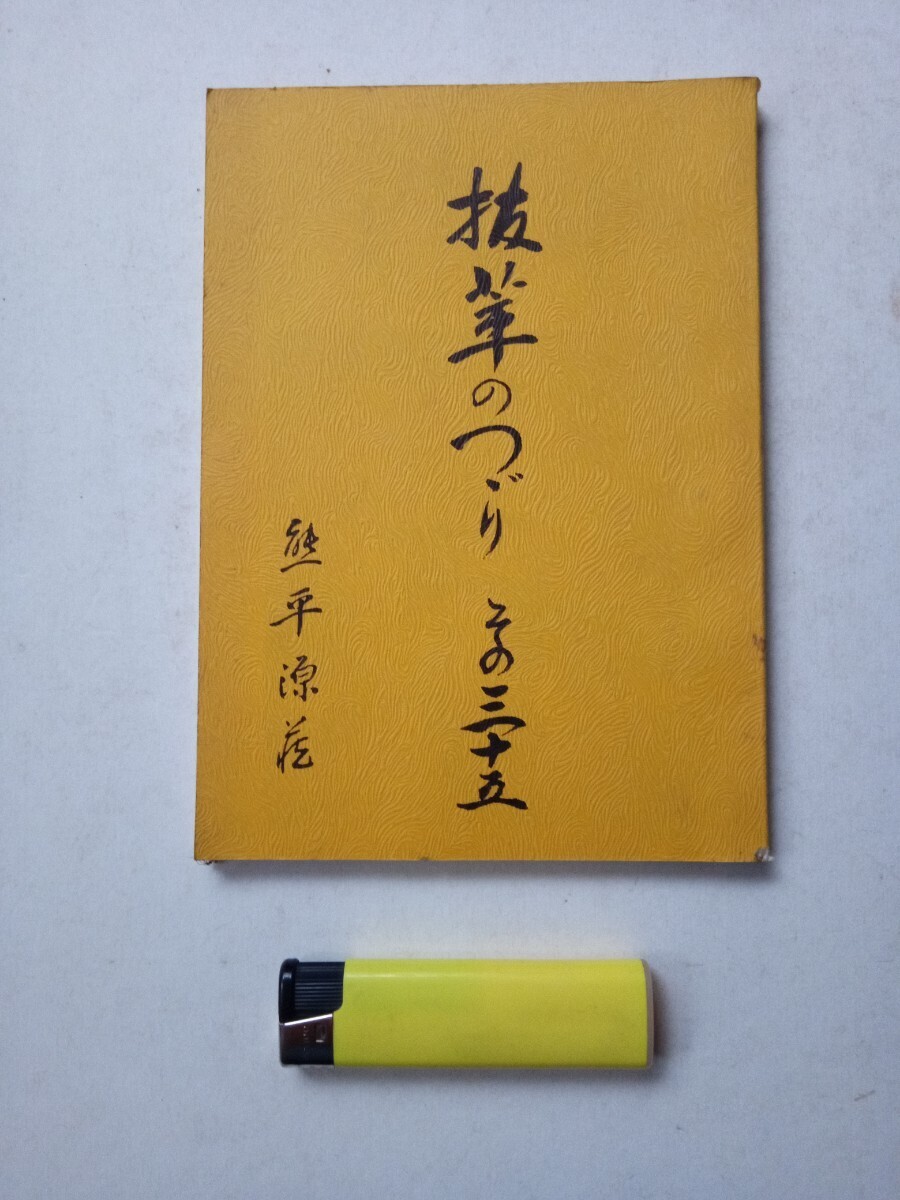 抜萃のつゞり その三十五
熊平源蔵